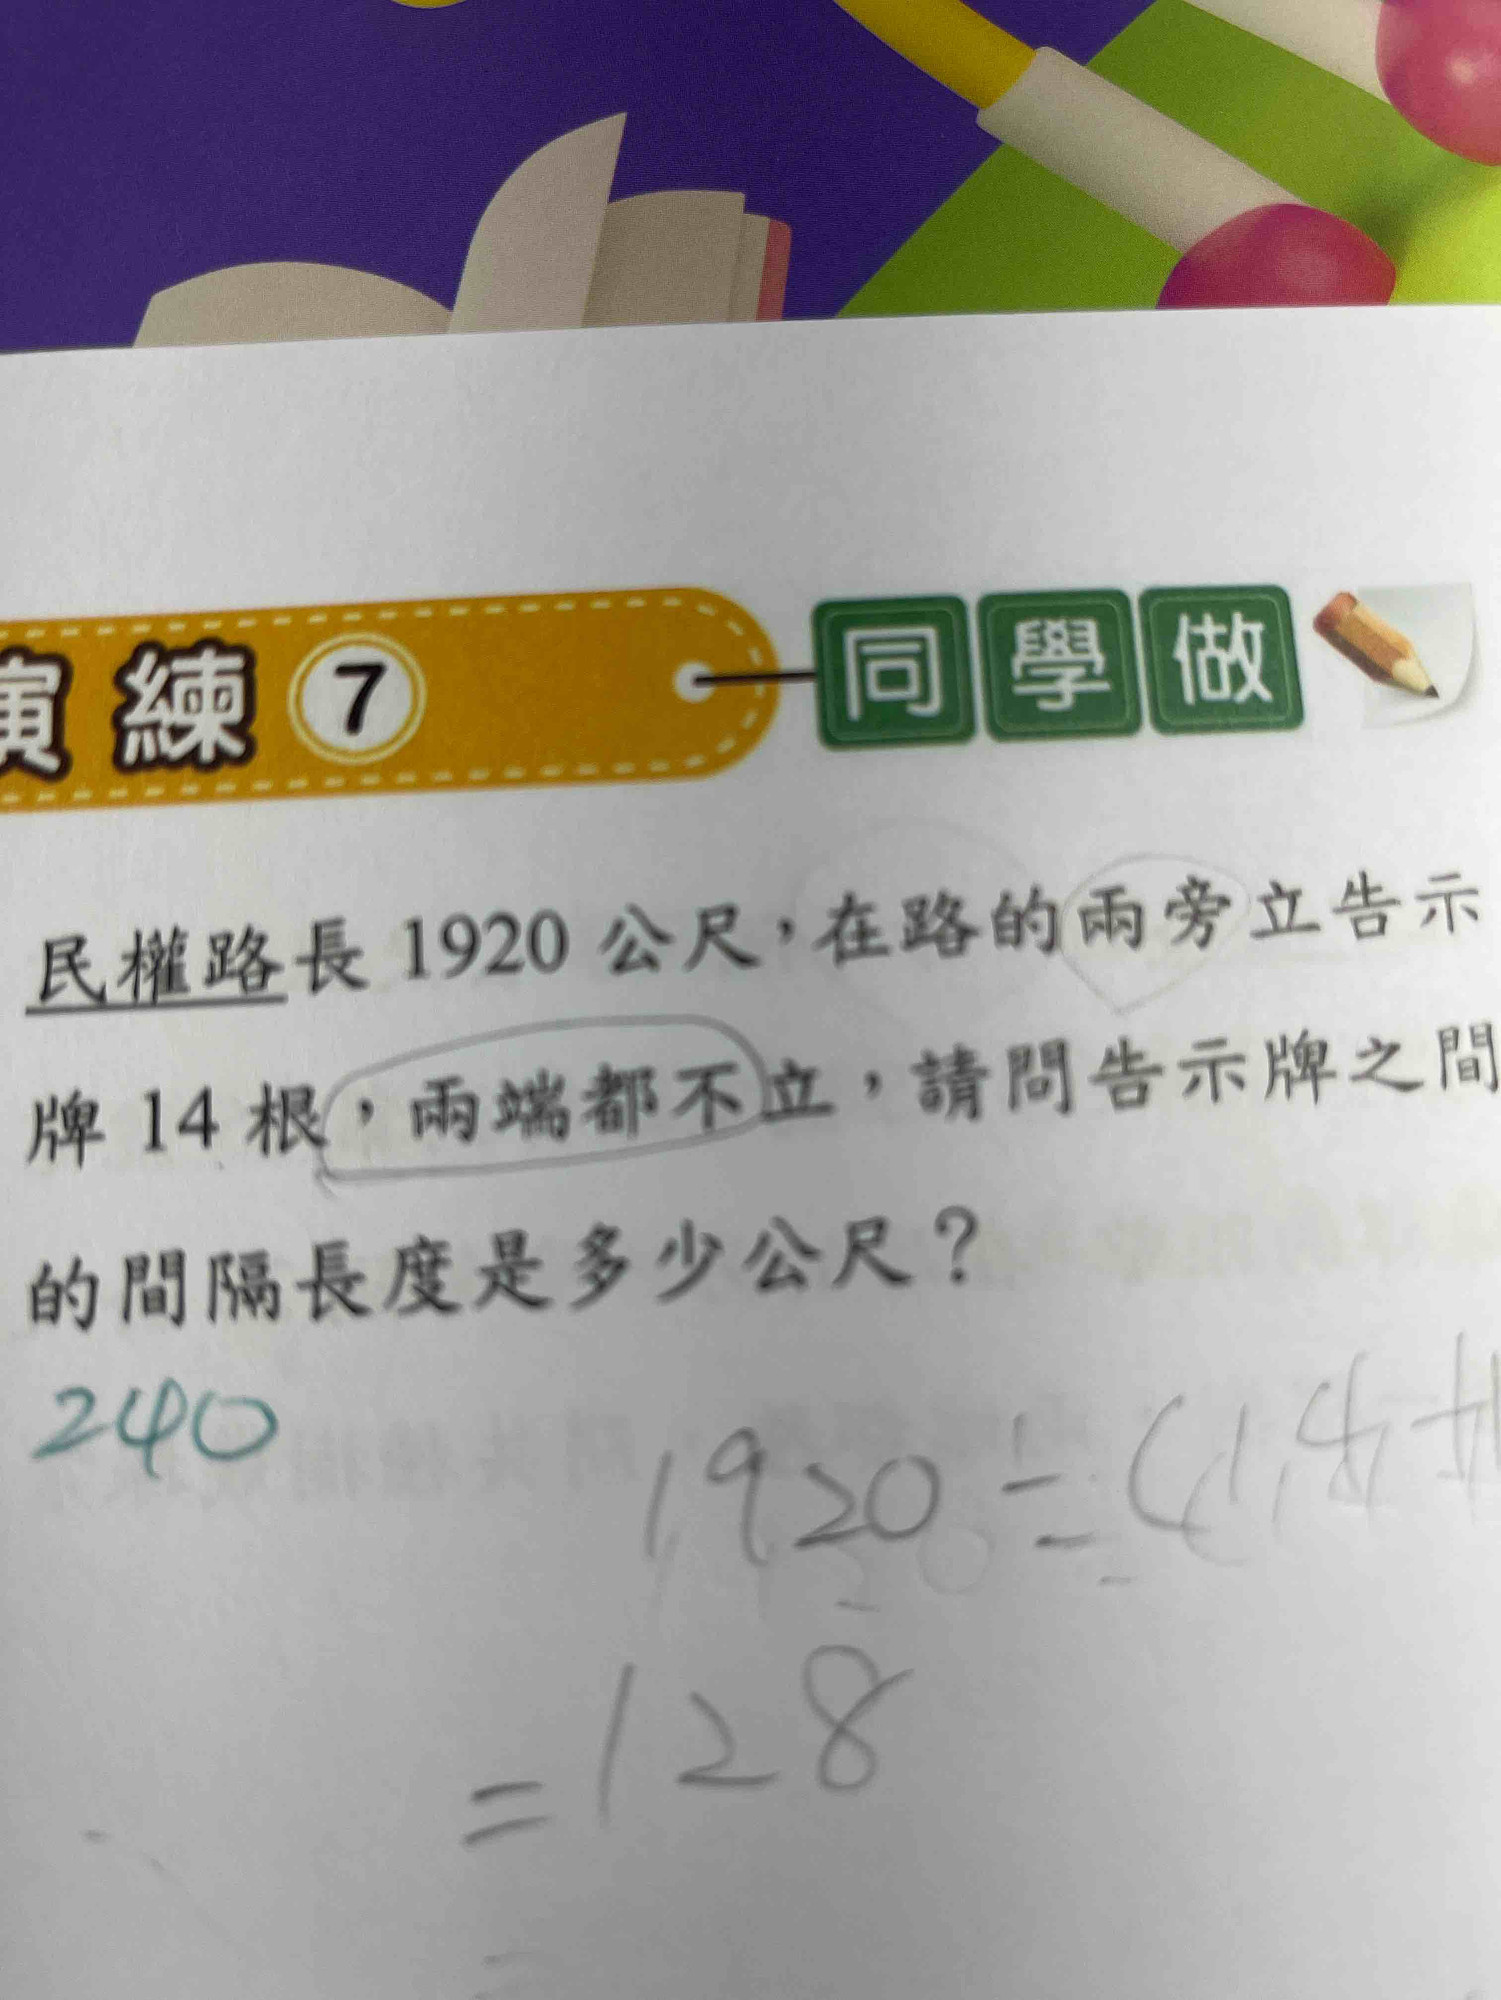 演練 7 同學做
民權路長 1920 公尺，在路的兩旁立告示
牌 14 根，兩端都不立，請問告示牌之間
的間隔長度是多少公尺？
240
1920÷
=128